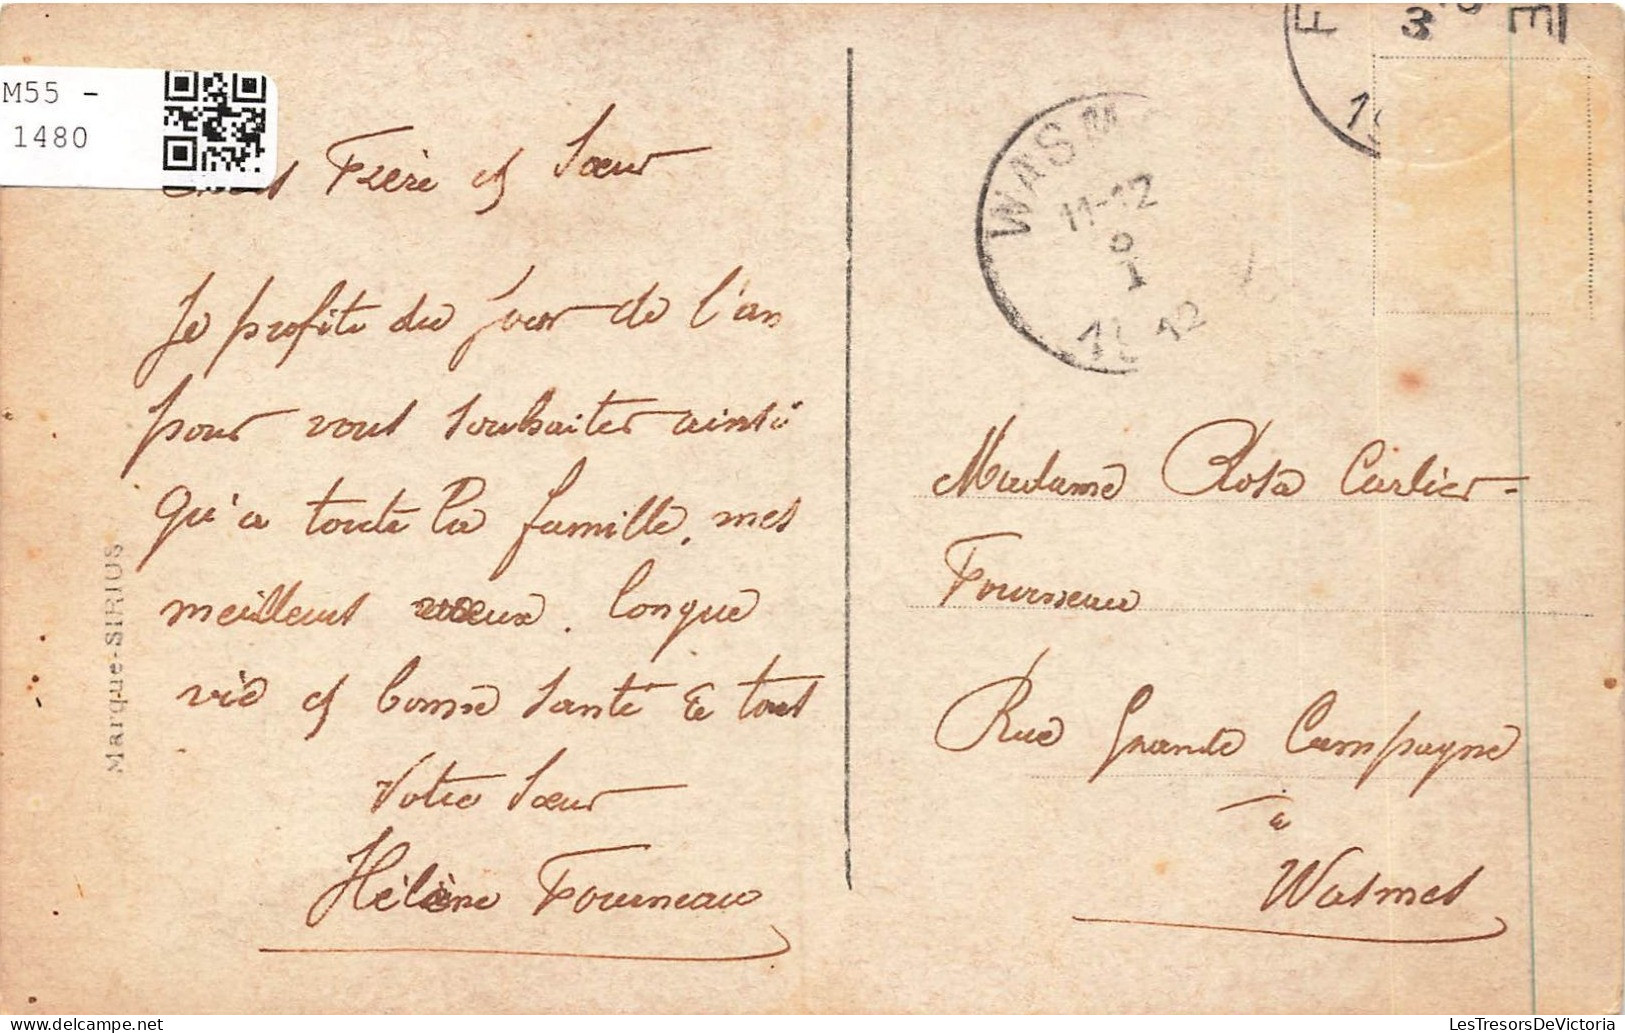 M55 -
1480
Frère et Sœur
Je profite du jour de l'an
pour vous souhaiter ainsi
qu'a toute la famille, mes
meilleurs vœux. longue
vie et bonne santé à tous
Votre Sœur
Hélène Fourneau
Marque-SIRIUS
WASM
11-12
I
12
3
E
Madame Rosa Carlier-
Fourneau
Rue Grande Campagne
à
Wasmes
LesTresorsDeVictoria